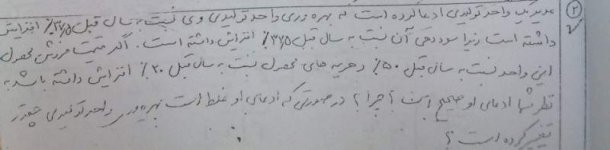 ۲ مدیر یک واحد تولیدی ادعا کرده است که بهره وری واحد تولیدی وی نسبت به سال قبل ۳۷/۵٪ افزایش
داشته است زیرا سوددهی آن نسبت به سال قبل ۳۷/۵٪ افزایش داشته است. اگر قیمت فروش محصول
این واحد نسبت به سال قبل ۵۰٪ و هزینه های محصول نسبت به سال قبل ۲۰٪ افزایش داشته باشد به
نظر شما ادعای او صحیح است؟ چرا؟ در صورتی که ادعای او غلط است بهره وری واحد تولیدی چقدر
تغییر کرده است؟